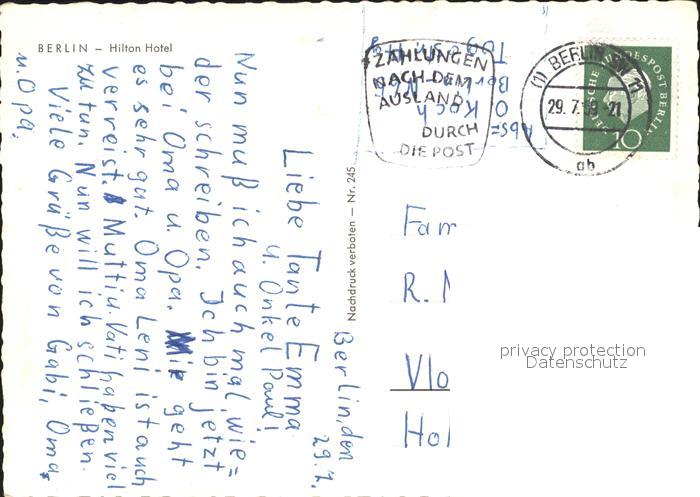 BERLIN – Hilton Hotel
Berlin, den
29.7.
Liebe Tante Emma
u. Onkel Paul!
Nun muß ich auch mal wie=
der schreiben. Ich bin jetzt
bei Oma u. Opa. Mir geht
es sehr gut. Oma Leni ist auch
verreist. Mutti u. Vati haben viel
zu tun. Nun will ich schließen.
Viele Grüße von Gabi, Oma
u. Opa.
Nachdruck verboten – Nr. 245
Abs=
O. Koch
Berlin
ZAHLUNGEN
NACH DEM
AUSLAND
DURCH
DIE POST
(1) BERLIN SW 11
29.7.59-21
ab
DEUTSCHE BUNDESPOST BERLIN
10
Fam
R.
Vlo
Hol
privacy protection
Datenschutz